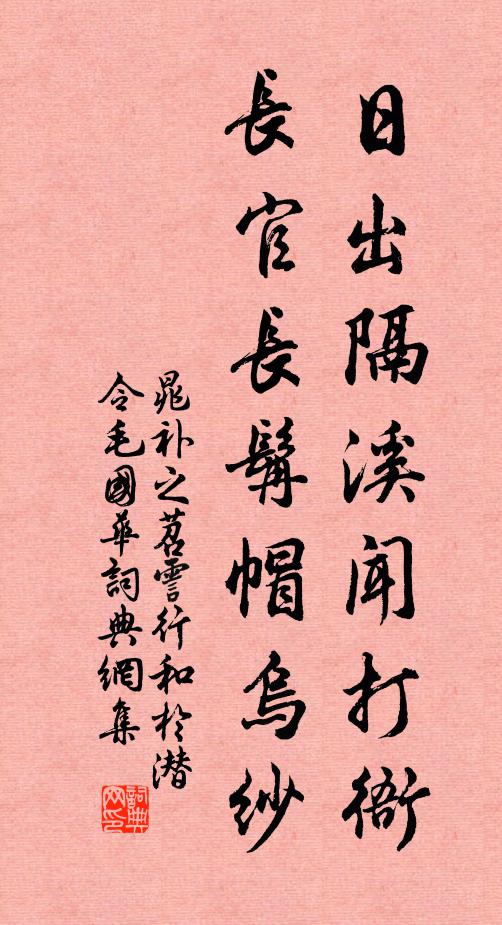 日出隔溪聞打衙
長官長髯帽烏紗
晁補之苕霅行和於潛
令毛國華詞典網集
詞典网印